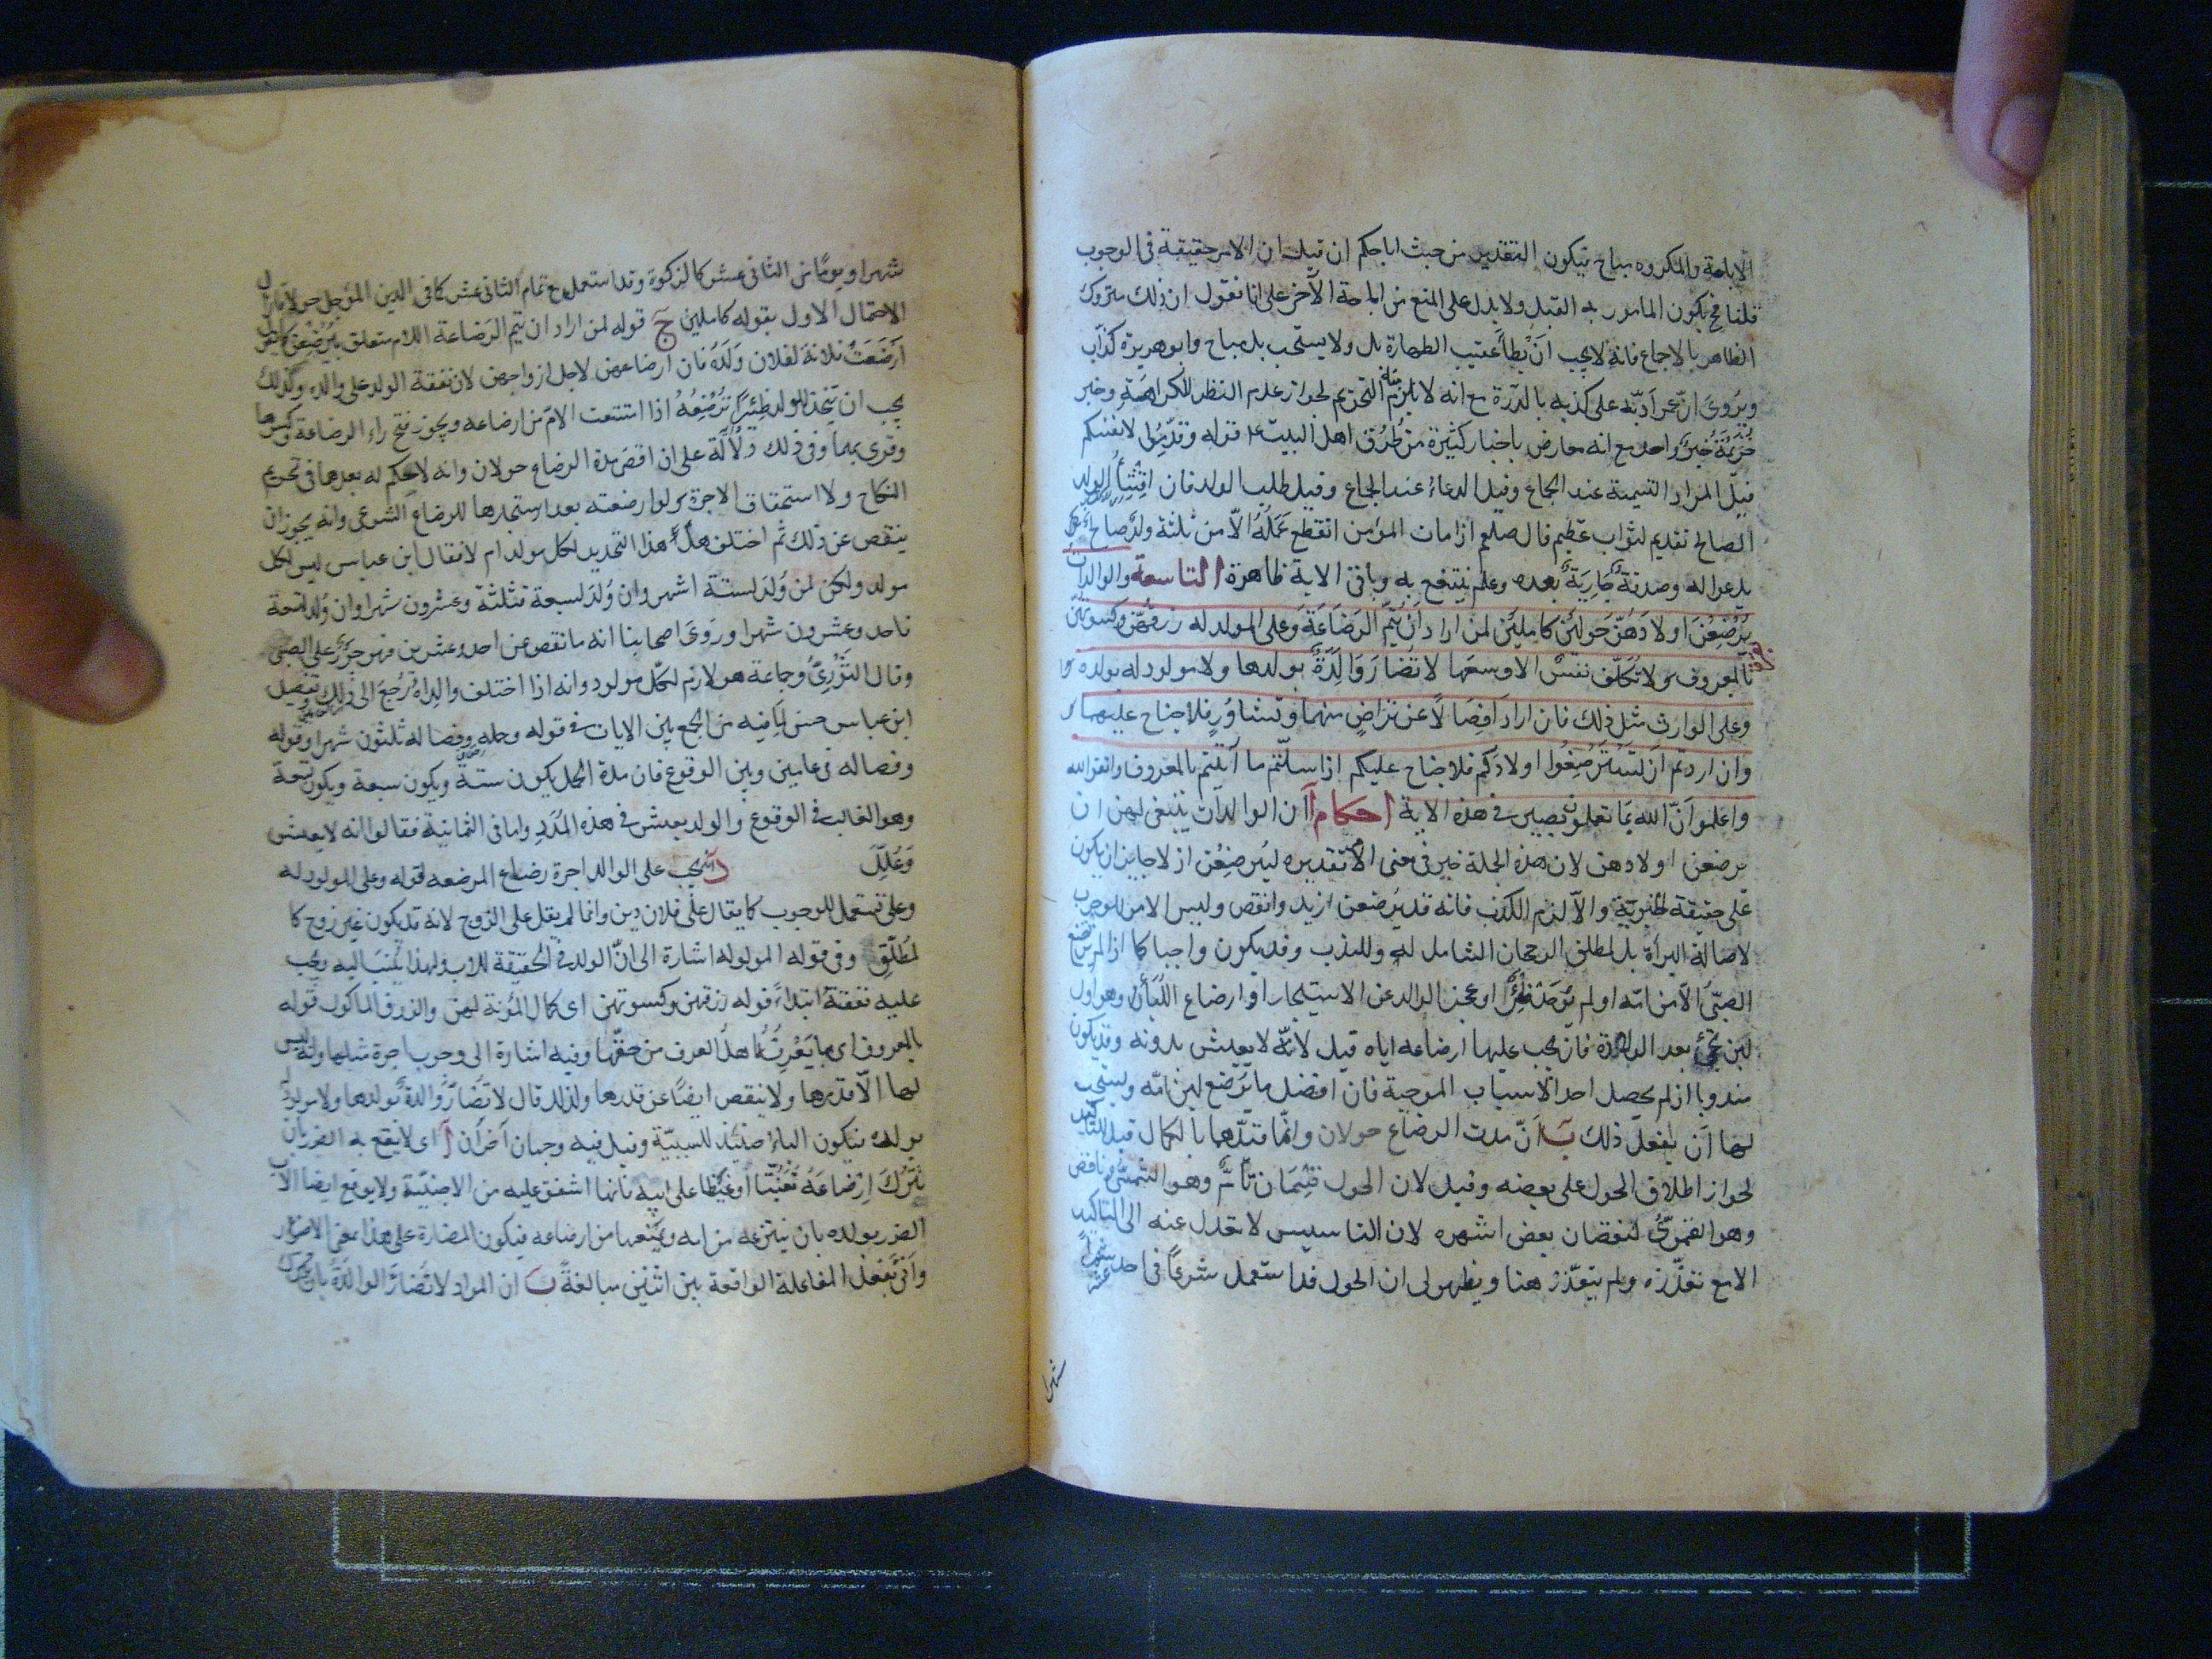 الاباحة والمكروه مباح فيكون التقدير من حيث اباحكم ان قيل ان الامر حقيقة فى الوجوب
قلنا فح يكون المامور به القبل ولا يدل على المنع من اباحة الآخر على انا نقول ان ذلك متروك
الظاهر بالاجماع فانه لا يجب ان يطأ عقيب الطهارة بل ولا يستحب بل مباح وابو هريرة كذّاب
ويروى ان عمر ادّبه على كذبه بالدرّة مع انه لا يلزم منه التحريم لجواز عدم النظر للكراهة وخبر
خزيمة خبر واحد مع انه معارض باخبار كثيرة من طُرُق اهل البيت ع قوله وقدّموا لانفسكم
قيل المراد التسمية عند الجماع وقيل الدعاء عند الجماع وقيل طلب الولد فان الولد
الصالح تقديم لثواب عظيم قال صلعم اذا مات المؤمن انقطع عَمَلُهُ الّا من ثلثة ولد صالح
يدعوا له وصدقة جَارِيَة بعده وعلم ينتفع به وباقى الاية ظاهرة التاسعة والوالدات
يُرْضِعْنَ اولادَهُنَّ حَولَيْن كاملَيْن لمن اراد اَن يُتِمَّ الرَضَاعَةَ وَعلى المولود له رزقهنّ وكسوتهنّ
بالمعروف لا تُكَلّف نفسٌ الا وسعها لا تُضارَ وَالِدَةٌ بولدها ولا مولود له بولده
وعلى الوارث مثل ذلك فان ارادَا فِصَالًا عَن تراضٍ منهما وتشاوُرٍ فلا جناح عليهما
وَان اردتم اَن تَسْتَرْضِعُوا اولادكم فلا جناح عليكم اذا سلّمتم ما آتيتم بالمعروف واتقوا الله
واعلموا اَنّ الله بِمَا تعملون بصير فى هذه الاية احكام آ ان الوالدات ينبغى لهن ان
يرضعن اولادهن لان هذه الجملة خبر فى معنى الامر تقديره ليُرضِعْن اذ لا جايز ان يكون
على حقيقة الخبرية والّا لزم الكذب فانه قد يُرضعن ازيد وانقص وليس الامر للوجوب
لاصالة البرأة بل لمطلق الرجحان الشامل له وللندب وقد يكون واجبا كما اذا لم يرتضع
الصبّى الّا من امّه او لم يُوجَد ظِئْرٌ او عجز الوالد عن الاستيجار او ارضاع اللِّبَأ وهو اول
لبن يجئ بعد الولادة فانه يجب عليها ارضاعه اياه قيل لانّه لا يعيش بدونه وقد يكون
مندوبا ان لم يحصل احد الاسباب الموجبة فان افضل ما يَرضع لبن امّه ويستحب
لها اَن يفعل ذلك بَ انّ مدت الرضاع حولان وانّما قيّدهما بالكمال قيل للتاكيد
لجواز اطلاق الحول على بعضه وقيل لان الحول قِسْمَان تامٌّ وهو الشمسىّ وناقص
وهو القمرىّ لنقصان بعض اشهره لان التاسيس لا يعدل عنه الى التاكيد
الا مع تعذّره ولم يتعذّر هنا ويظهر لى ان الحول قد استعمل شرعًا فى احد عشر
شهرا
شهرا ويومًا من الثانى عشر كالزكوة وقد استعمل مع تمام الثانى عشر كما فى الدين المؤجل حولا
الاحتمال الاول بقوله كاملين جَ قوله لمن اراد ان يتم الرَضاعة اللام متعلق بيُرْضِعْن
اَرْضَعَتْ فلانة لفلان وَلَدَه فان ارضاعهن لاجل ازواجهن لان نفقة الولد على والده وكذلك
يجب ان يتّخذ للولد ظِئْرا تُرْضِعُهُ اذا امتنعت الامّ من ارضاعه ويجوز فتح راء الرضاعة وكسرها
وقرئ بهما وفى ذلك دلالة على ان اقصى مدة الرضاع حولان وانه لا حكم له بعدها فى تحريم
النكاح ولا استحقاق الاجرة لو ارضعته بعد استجرها للرضاع الشرعى وانه يجوز ان
ينقص عن ذلك ثم اختلف هل هذا التحديد لكل مولد ام لا فقال ابن عباس ليس لكل
مولد ولكن لمن وُلدَ لستة اشهر وان وُلدَ لسبعة فثلثة وعشرون شهرا وان وُلد لتسعة
فاحد وعشرون شهرا ورَوى اصحابنا انه ما نقص عن احد وعشرين فهو جَوْرٌ على الصبى
وقال الثَّوْرِىُّ وجماعة هو لازم لكلّ مولود وانه اذا اختلف والِداه رُجِعَ الى ذلك وتفصيل
ابن عباس حسن لِمَا فيه من الجمع بين الايات فى قوله وحمله وفصاله ثلثون شهرا وقوله
وفصاله فى عامين وبين الوقوع فان مدة الحمل يكون ستة ويكون سبعة ويكون تسعة
وهو الغالب فى الوقوع والولد يعيش فى هذه المُدَدِ واما فى الثمانية فقالوا انه لا يعيش
وَعُلِّلَ دَ انّه يجب على الوالد اجرة رضاع المرضعه لقوله وعلى المولود له
وعلى تستعمل للوجوب كما يقال على فلان دين وانما لم يقل على الزوج لانه قد يكون غير زوج كا
لمُطَلِّقِ وفى قوله المولود له اشارة الى انّ الولد فى الحقيقة للاب ولهذا يُنسَب اليه ويجب
عليه نفقته ابتداءً قوله رزقهن وكسوتهن اى كمال المؤنة لهن والرزق الماكول قوله
بالمعروف اى بما يَعْرِفُ اهلُ العرف من حقّها وفيه اشارة الى وجوب اجرة مثلها وانه ليس
لها الّا قدرها ولا ينقص ايضًا عن قدرها ولذلك قال لا تُضَارَّ والدة بولدها ولا مولود له
بولده فيكون الباء حينئذ للسببيّة وقيل فيه وجهان آخران آ اى لا يقع به الضرر بان
تَتْرُكَ اِرْضاعَهُ تعنّتا او غيْظا على ابيه فانها اشفق عليه من الاجنبيّة ولا يوقع ايضا الاب
الضرر بولده بان ينتزعه من امه ويمنعها من ارضاعه فيكون المضارة على هذا بمعنى الاضرار
واتى بفعل المفاعلة الواقعة بين اثنين مبالغةً بَ ان المراد لا تُضارَّ الوالدةُ بان